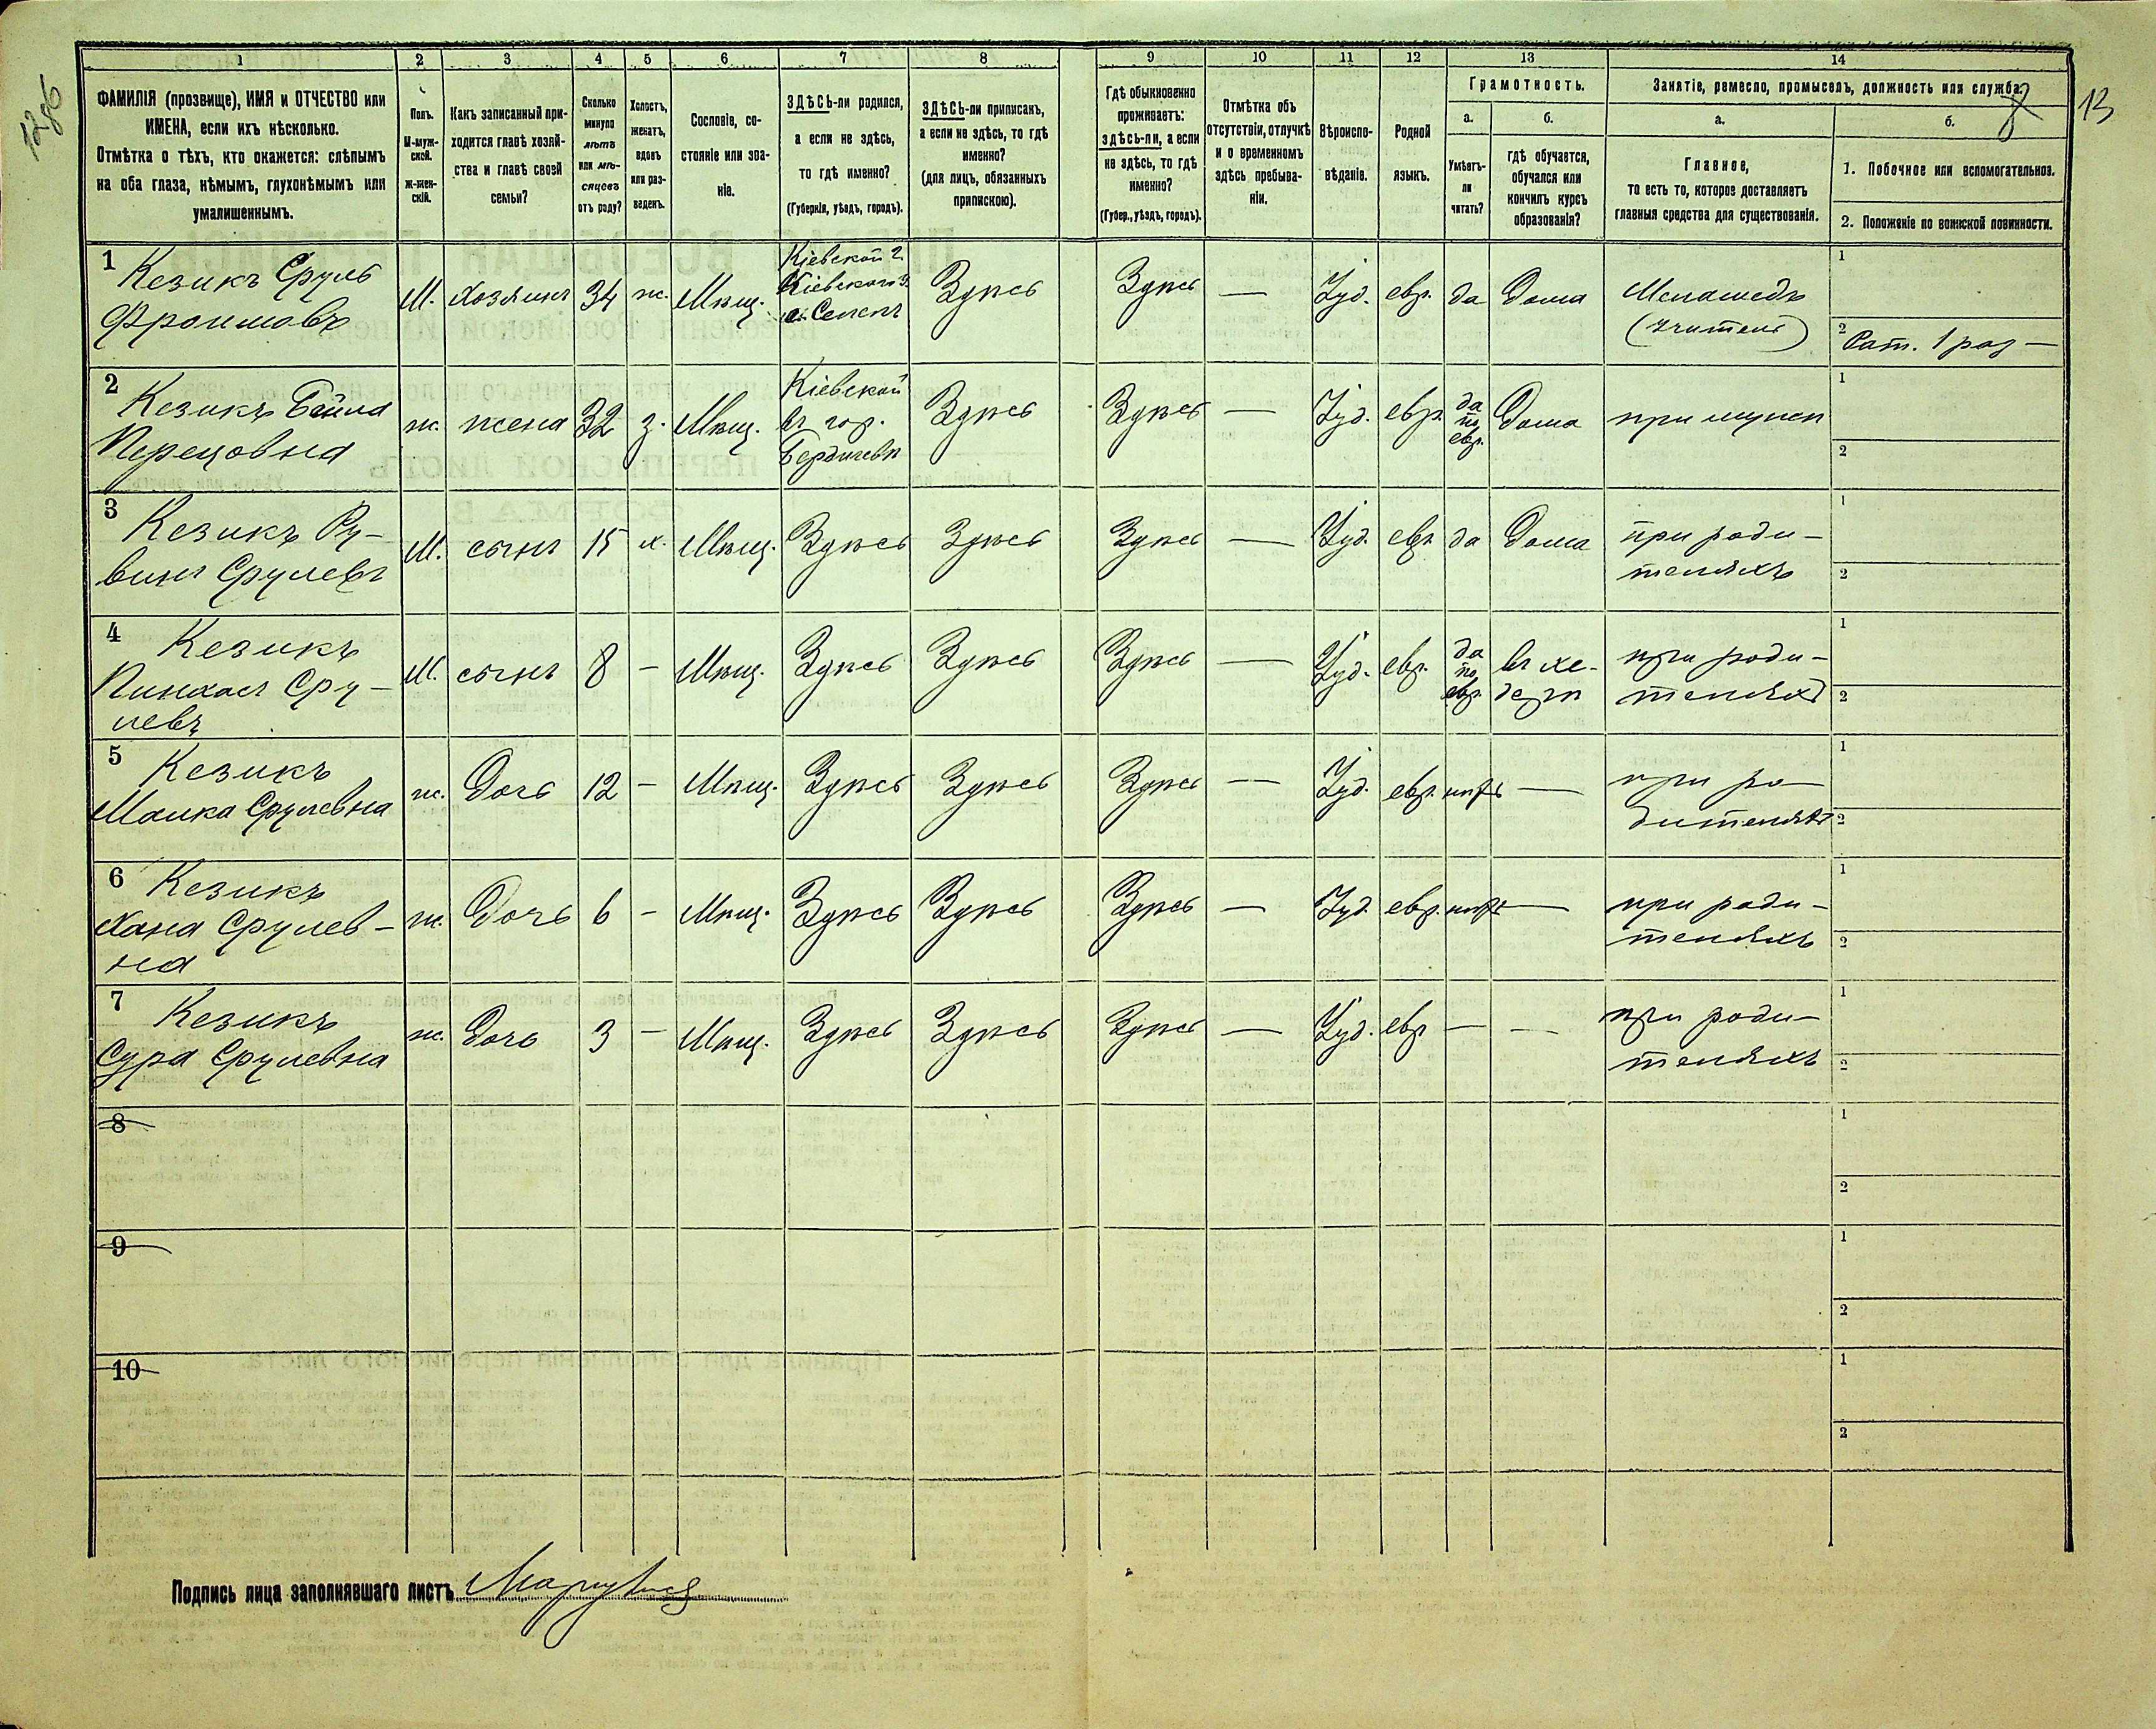 12 об
13
1 2 3 4 5 6 7 8 9 10 11 12 13 14
ФАМИЛІЯ (прозвище), ИМЯ и ОТЧЕСТВО или
ИМЕНА, если ихъ нѣсколько.
Отмѣтка о тѣхъ, кто окажется: слѣпымъ
на оба глаза, нѣмымъ, глухонѣмымъ или
умалишеннымъ.
Полъ.
М-муж-
ской.
ж-жен-
скій.
Какъ записанный при-
ходится главѣ хозяй-
ства и главѣ своей
семьи?
Сколько
минуло
лѣтъ
или мѣ-
сяцевъ
отъ роду?
Холостъ,
женатъ,
вдовъ
или раз-
веденъ.
Сословіе, со-
стояніе или зва-
ніе.
ЗДѢСЬ-ли родился,
а если не здѣсь,
то гдѣ именно?
(Губернія, уѣздъ, городъ).
ЗДѢСЬ-ли приписанъ,
а если не здѣсь, то гдѣ
именно?
(для лицъ, обязанныхъ
припискою).
Гдѣ обыкновенно
проживаетъ:
здѣсь-ли, а если
не здѣсь, то гдѣ
именно?
(Губер., уѣздъ, городъ).
Отмѣтка объ
отсутствіи, отлучкѣ
и о временномъ
здѣсь пребыва-
ніи.
Вѣроиспо-
вѣданіе.
Родной
языкъ.
Грамотность.
а.
Умѣетъ-
ли
читать?
б.
гдѣ обучается,
обучался или
кончилъ курсъ
образованія?
Занятіе, ремесло, промыселъ, должность или служба.
а.
Главное,
то есть то, которое доставляетъ
главныя средства для существованія.
б.
1. Побочное или вспомогательное.
2. Положеніе по воинской повинности.
1
Кезикъ Сруль
Фроимовъ
М.
хозяинъ
34
ж.
Мѣщ.
Кіевской г.
Кіевского у.
Здѣсь
Здѣсь
—
Іуд.
евр.
да
дома
Меламедъ
(учитель)
1
2 Рат. 1 раз —
2
Кезикъ Бейла
Перецовна
ж.
жена
32
з.
Мѣщ.
Кіевской
въ гор.
Бердичевѣ
Здѣсь
Здѣсь
—
Іуд.
евр.
да
по
евр.
дома
при мужѣ
1
2
3
Кезикъ Ру-
винъ Срулевъ
М.
сынъ
15
х.
Мѣщ.
Здѣсь
Здѣсь
Здѣсь
—
Іуд.
евр.
да
дома
при роди-
теляхъ
1
2
4
Кезикъ
Пинхасъ Сру-
левъ
М.
сынъ
8
—
Мѣщ.
Здѣсь
Здѣсь
Здѣсь
—
Іуд.
евр.
да
по
евр.
въ хе-
дерѣ
при роди-
теляхъ
1
2
5
Кезикъ
Малка Срулевна
ж.
дочь
12
—
Мѣщ.
Здѣсь
Здѣсь
Здѣсь
—
Іуд.
евр.
нѣтъ
—
при ро-
дителяхъ
1
2
6
Кезикъ
Хана Срулев-
на
ж.
дочь
6
—
Мѣщ.
Здѣсь
Здѣсь
Здѣсь
—
Іуд.
евр.
нѣтъ
—
при роди-
теляхъ
1
2
7
Кезикъ
Сура Срулевна
ж.
дочь
3
—
Мѣщ.
Здѣсь
Здѣсь
Здѣсь
—
Іуд.
евр
—
—
при роди-
теляхъ
1
2
8
1
2
9
1
2
10
1
2
Подпись лица заполнявшаго листъ